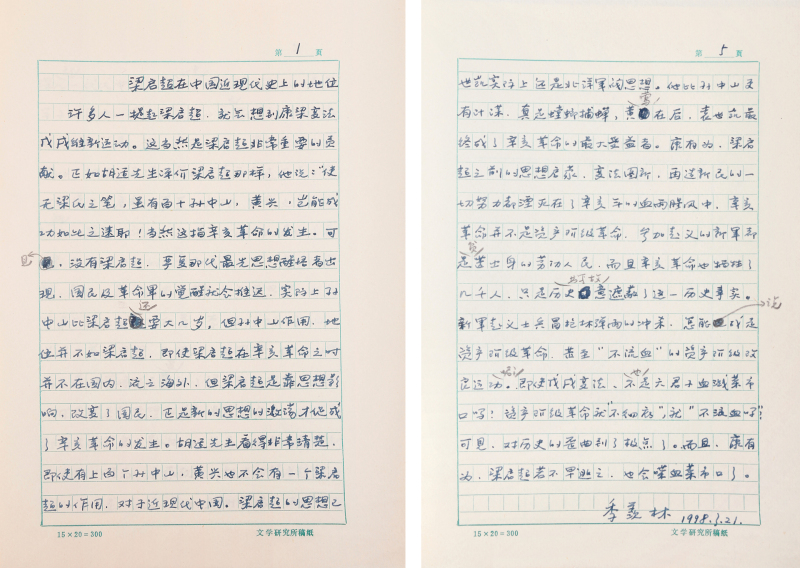 第 1 页
梁启超在中国近现代史上的地位
许多人一提起梁启超,就会想到康梁变法
戊戌维新运动。这当然是梁启超非常重要的贡
献。正如胡适先生评价梁启超那样,他说:“使
无梁氏之笔,虽有百十孙中山,黄兴,岂能成
功如此之速耶!当然这指辛亥革命的发生。可
见
,没有梁启超,严复那代最先思想醒悟者出
现,国民及革命军的觉醒就会推迟,实际上孙
还
中山比梁启超要大几岁,但孙中山作用、地
位并不如梁启超,即使梁启超在辛亥革命之时
并不在国内,流亡海外,但梁启超是靠思想影
响,改变了国民,正是新的思想的激荡才促成
了辛亥革命的发生。胡适先生看得非常清楚,
即使有上百个孙中山,黄兴也不会有一个梁启
超的作用,对于近现代中国。梁启超的思想已
15×20=300
文学研究所稿纸
第 5 页
世凯实际上还是北洋军阀思想。他比孙中山更
雀
有计谋,真是螳螂捕蝉,黄在后,袁世凯最
终成了辛亥革命的最大受益者。康有为、梁启
超之前的思想启蒙、变法图新,再造新民的一
切努力都湮灭在了辛亥年的血雨腥风中,辛亥
革命并不是资产阶级革命,参加起义的新军都
是苦出身的劳动人民,而且辛亥革命也牺牲了
几千人,只是历史遮蔽了这一历史事实。
新军起义士兵冒枪林弹雨的冲杀,怎能成是
说
资产阶级革命,甚至“不流血”的资产阶级改
良运动。即使戊戌变法、不是六君子血溅菜市
吗?
也
口吗!资产阶级革命就“不彻底”,就“不流血吗”!
可见,对历史的歪曲到了极点了。而且,康有
为、梁启超若不早逃亡,也会喋血菜市口了。
季羡林 1998.3.21.
15×20=300
文学研究所稿纸